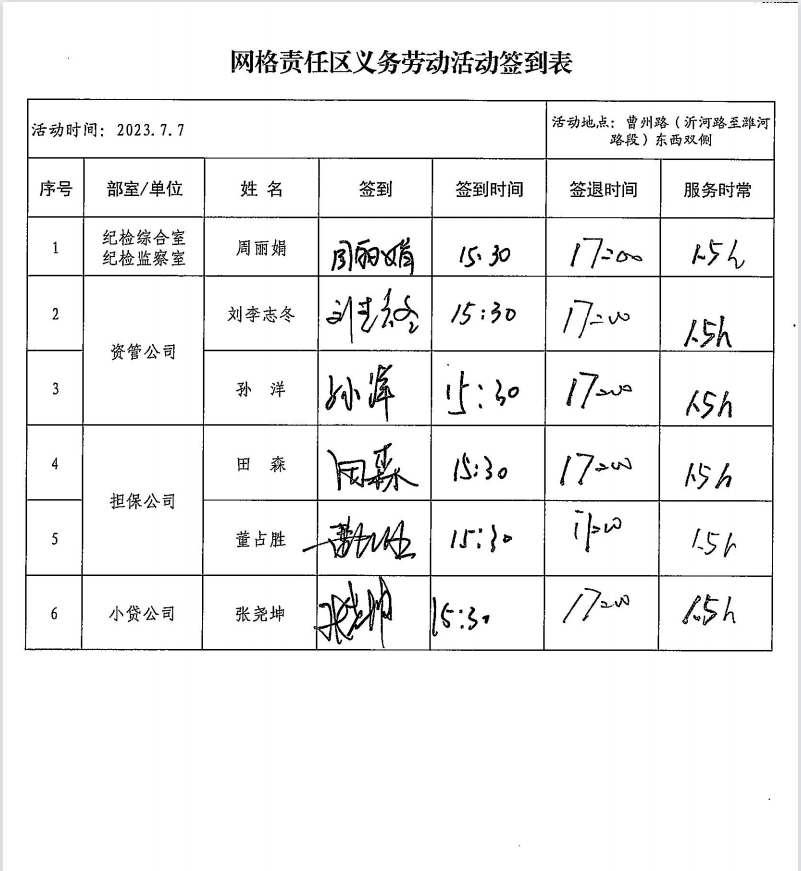 网格责任区义务劳动活动签到表
活动时间：2023.7.7
活动地点：曹州路（沂河路至潍河
路段）东西双侧
序号 部室/单位 姓 名 签到 签到时间 签退时间 服务时常
1 纪检综合室 纪检监察室 周丽娟 周丽娟 15:30 17:00 1.5h
2 资管公司 刘李志冬 刘李志冬 15:30 17:00 1.5h
3 孙 洋 孙洋 15:30 17:00 1.5h
4 担保公司 田 森 田森 15:30 17:00 1.5h
5 董占胜 董占胜 15:30 17:00 1.5h
6 小贷公司 张尧坤 张尧坤 15:30 17:00 1.5h